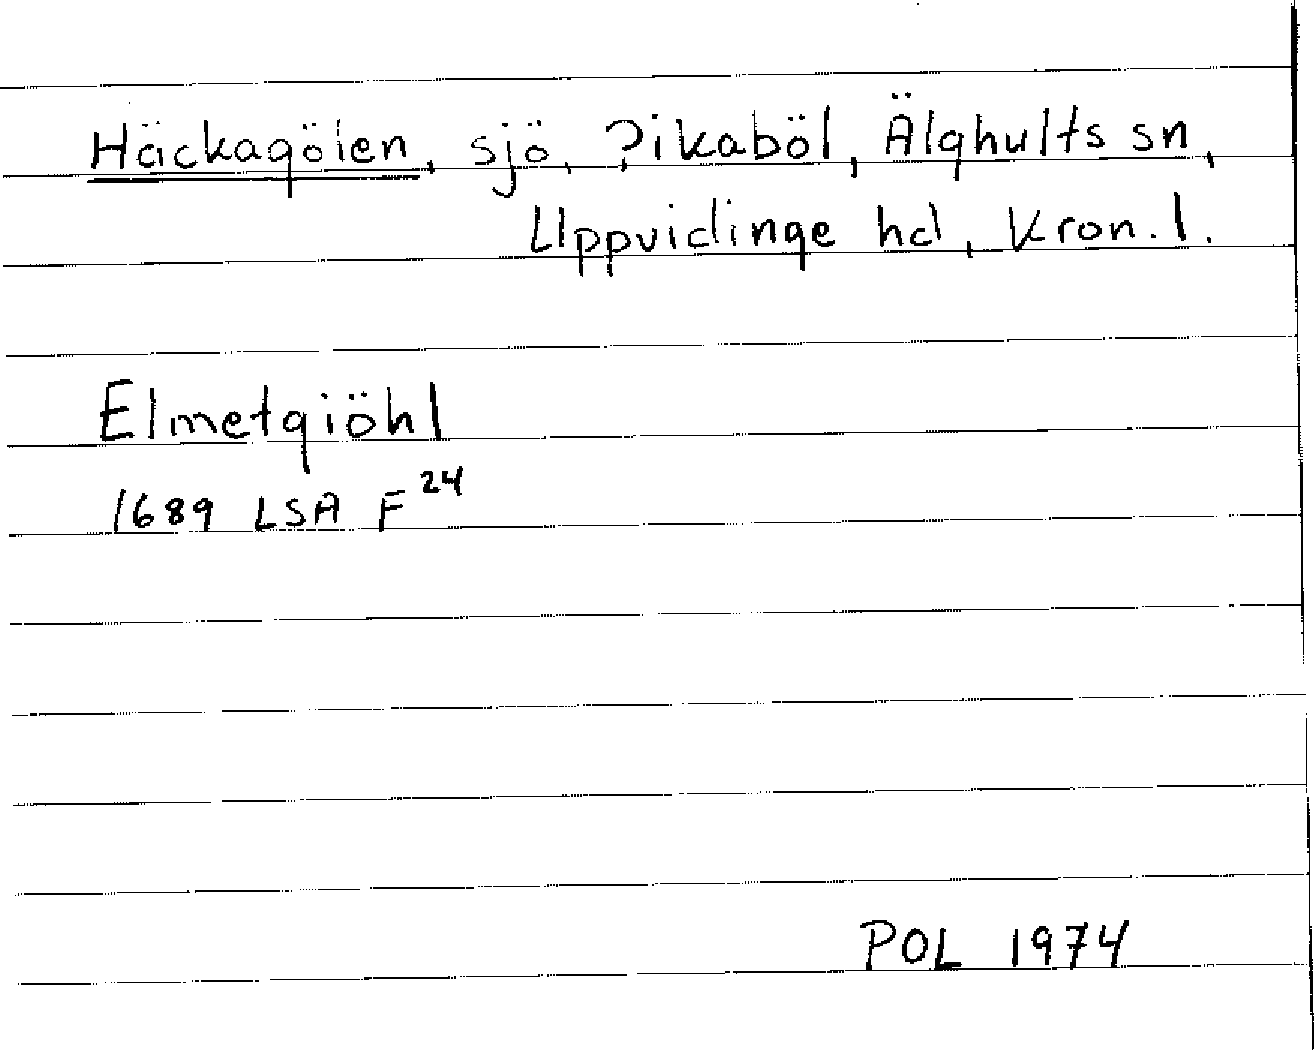 Häckagölen, sjö, ?ikaböl, Älghults sn,
Uppvidinge hd, Kron. l.
Elmetgiöhl
1689 LSA F 24
POL 1974